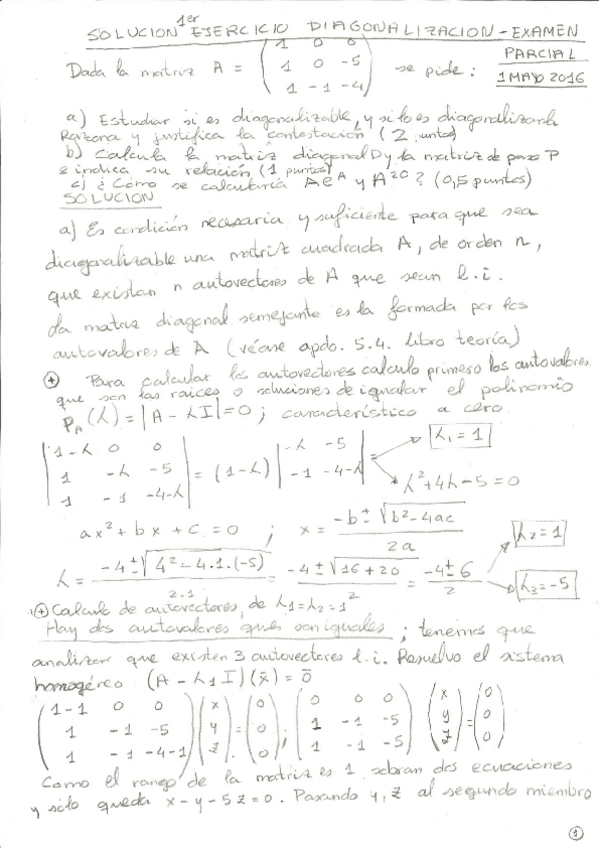 SOLUCION 1er EJERCICIO DIAGONALIZACION - EXAMEN
PARCIAL
1 MAYO 2016
Dada la matriz A = ( 1 0 0 ; 1 0 -5 ; 1 -1 -4 ) se pide:
a) Estudiar si es diagonalizable, y si lo es diagonalizarla
Razona y justifica la contestación (2 puntos)
b) Calcula la matriz diagonal D y la matriz de paso P
e indica su relación (1 puntos)
c) ¿Como se calcularía A e^A y A^20? (0,5 puntos)
SOLUCION
a) Es condición necesaria y suficiente para que sea
diagonalizable una matriz cuadrada A, de orden n,
que existan n autovectores de A que sean l.i.
La matriz diagonal semejante es la formada por los
autovalores de A (véase apdo. 5.4. libro teoría)
+ Para calcular los autovectores calculo primero los autovalores
que son las raices o soluciones de igualar el polinomio
P_A(λ) = |A - λI| = 0 ; característico a cero.
| 1-λ 0 0 ; 1 -λ -5 ; 1 -1 -4-λ | = (1-λ) | -λ -5 ; -1 -4-λ | = → λ1 = 1
→ λ²+4λ-5=0
ax²+bx+c=0 ; x = (-b±√(b²-4ac))/2a
λ = (-4±√(4²-4·1·(-5)))/2·1 = (-4±√(16+20))/2 = (-4±6)/2 → λ2=1 → λ3=-5
+ Calculo de autovectores, de λ1=λ2=1
Hay dos autovalores que son iguales ; tenemos que
analizar que existen 3 autovectores l.i. Resuelvo el sistema
homogéneo (A - λ1 I)(x̄) = 0̄
( 1-1 0 0 ; 1 -1 -5 ; 1 -1 -4-1 ) ( x ; y ; z ) = ( 0 ; 0 ; 0 ) ; ( 0 0 0 ; 1 -1 -5 ; 1 -1 -5 ) ( x ; y ; z ) = ( 0 ; 0 ; 0 )
Como el rango de la matriz es 1 sobran dos ecuaciones
y sólo queda x-y-5z=0. Pasando y, z al segundo miembro
1